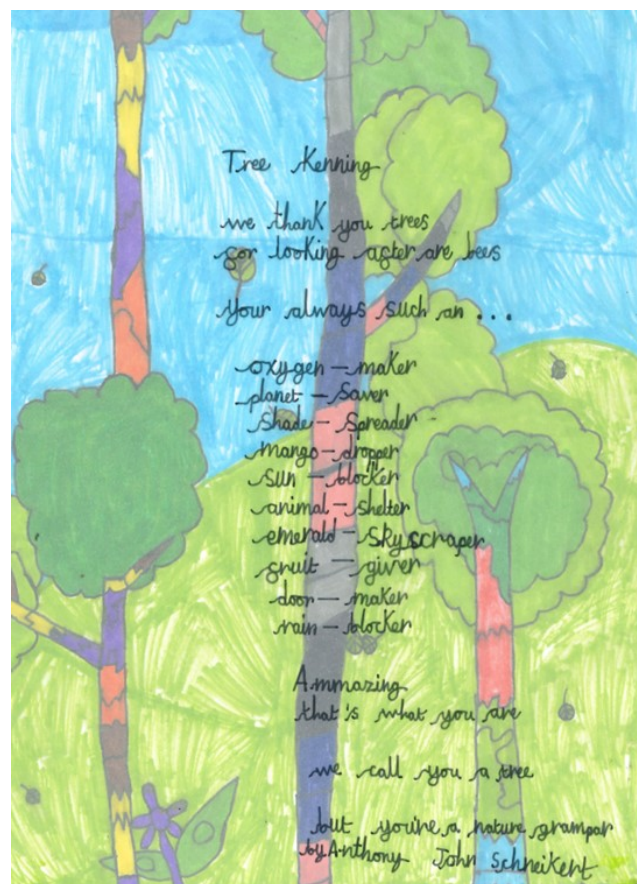 Tree Kenning
we thank you trees
for looking after are bees
Your always such an ...
oxygen - maker
planet - Saver
Shade - Spreader
mango - dropper
sun - blocker
animal - shelter
emerald - Skyscraper
fruit - giver
door - maker
rain - blocker
Ammazing
that's what you are
we call you a tree
but you're a nature grampar
by Anthony John Schneikert